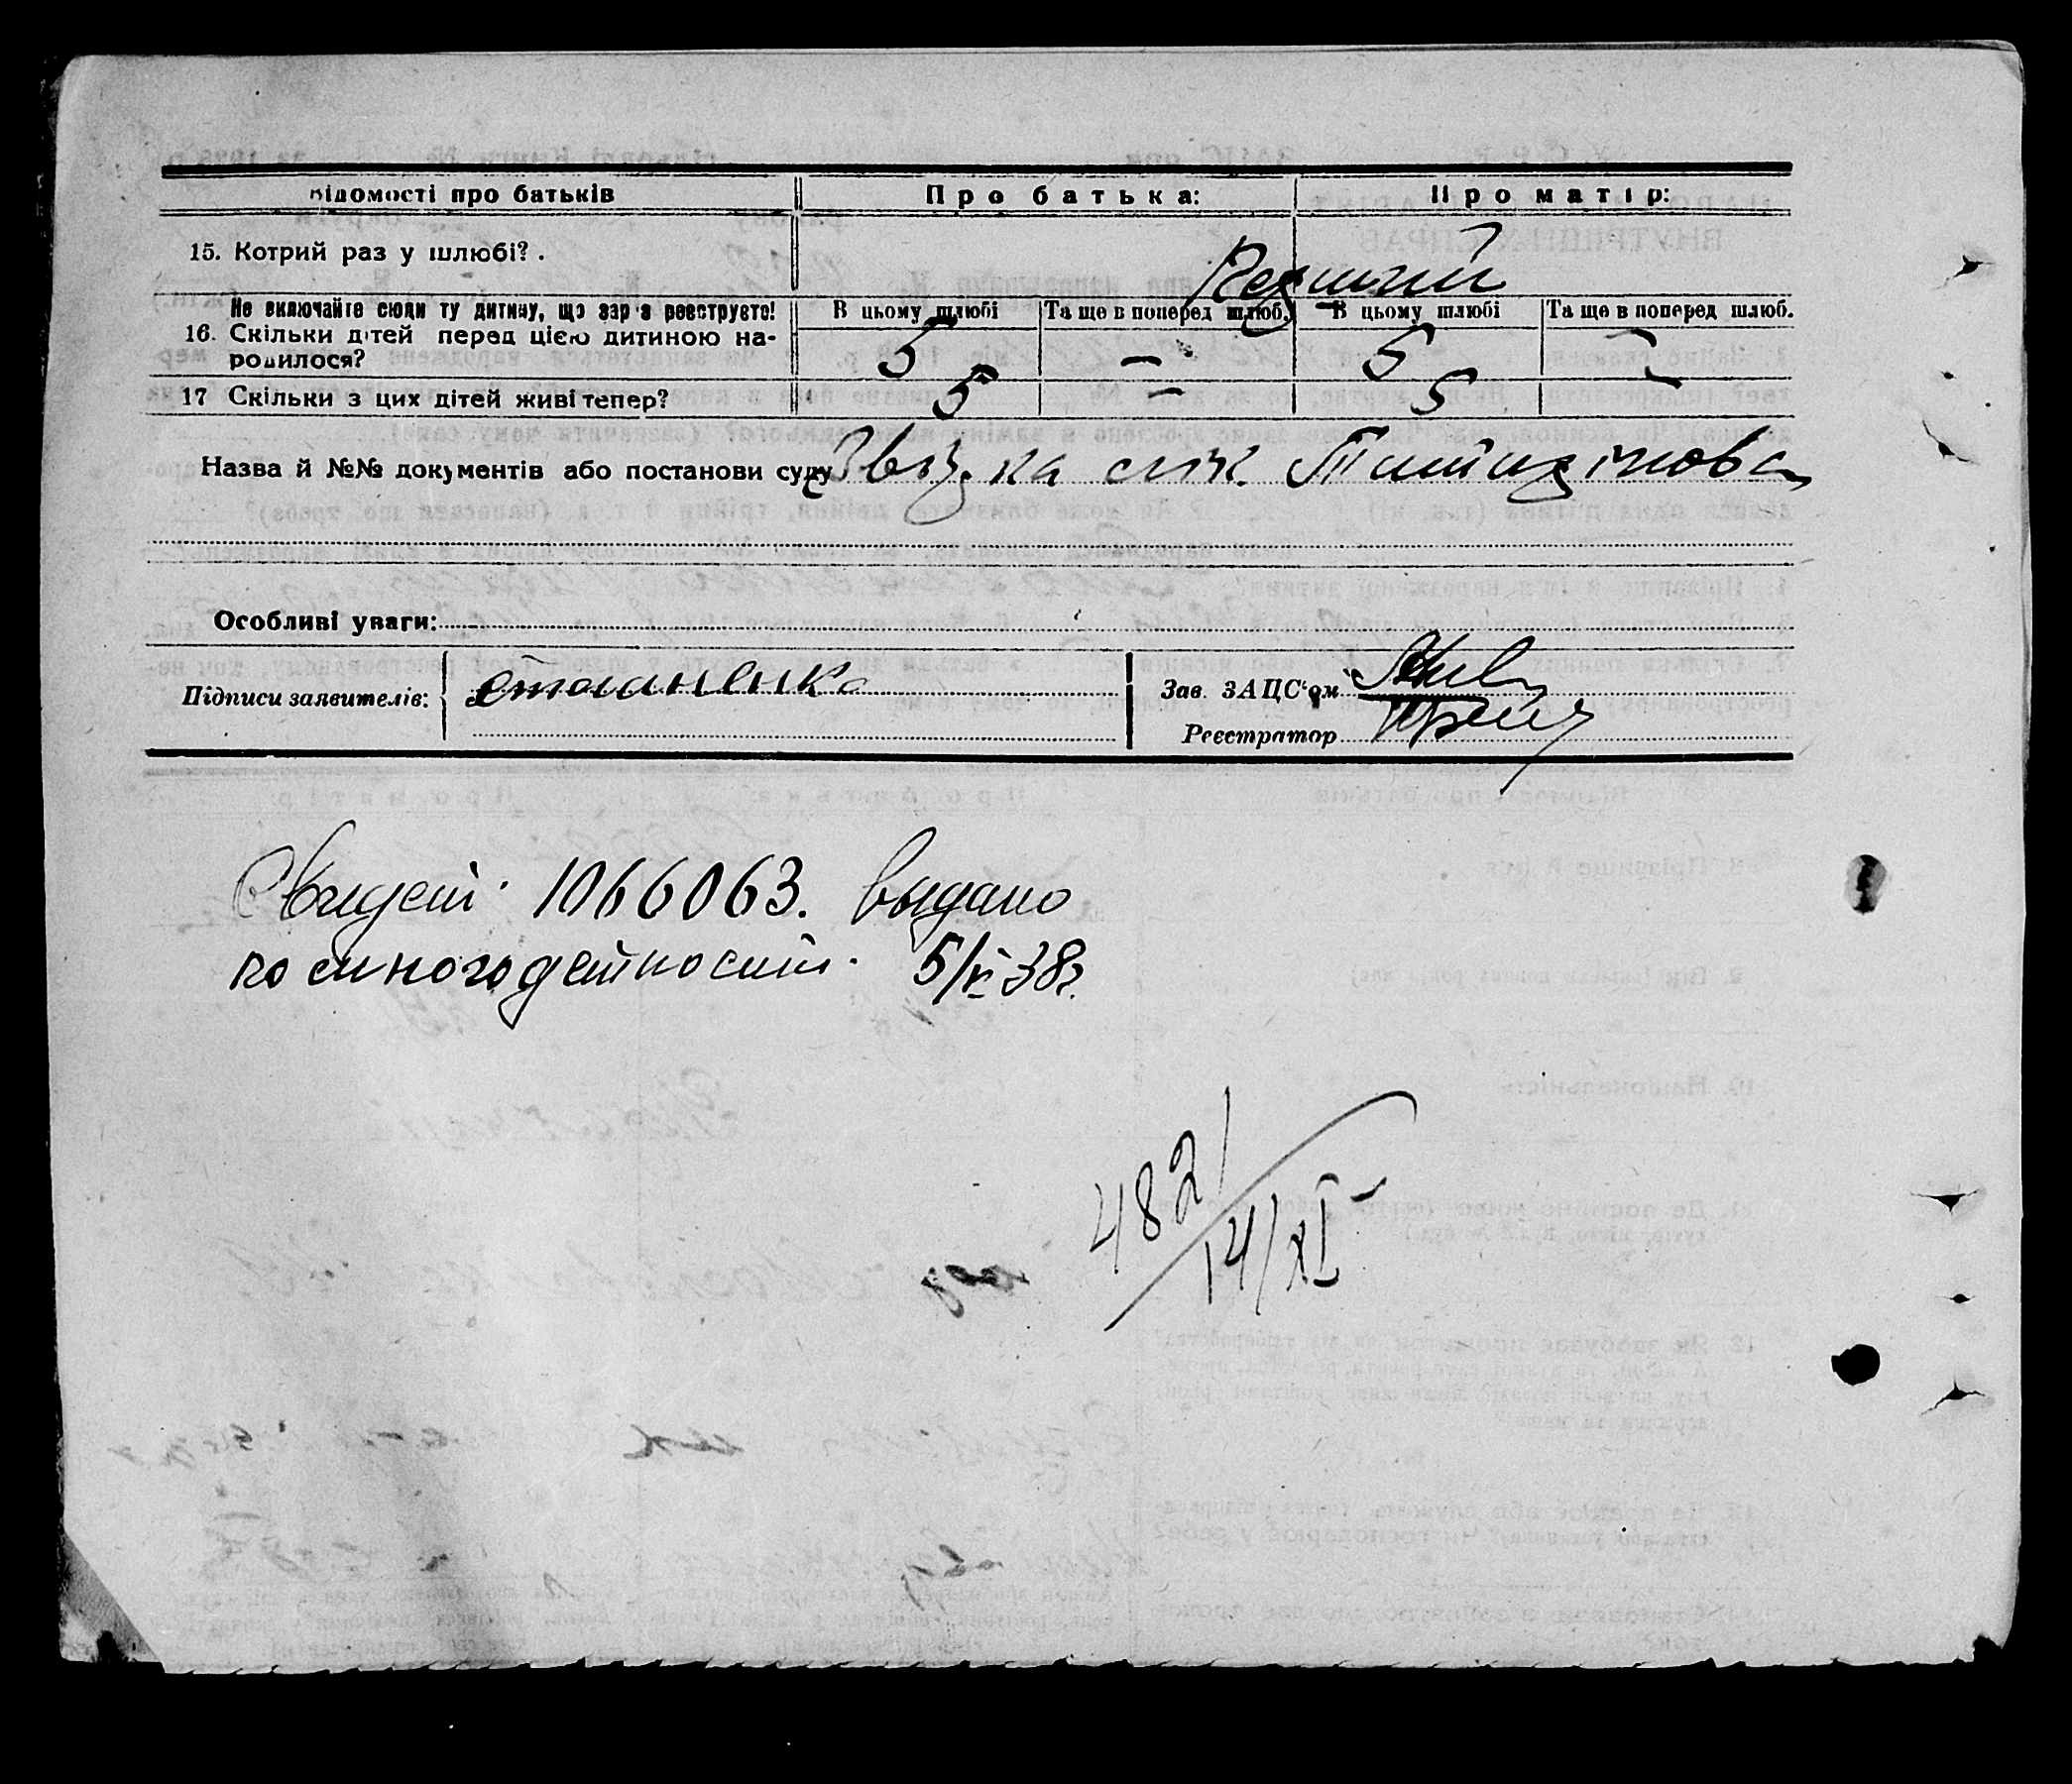 Відомості про батьків Про батька: Про матір:
15. Котрий раз у шлюбі?. Перший
Не включайте сюди ту дитину, що зараз реєструєте! В цьому шлюбі Та ще в поперед шлюб. В цьому шлюбі Та ще в поперед шлюб.
16. Скільки дітей перед цією дитиною на-
родилося? 5 — 5 —
17 Скільки з цих дітей живі тепер? 5 — 5 —
Назва й №№ документів або постанови суду
Особливі уваги:
Підписи заявителів: Зав. ЗАЦС'ом
Реєстратор
Свидет. 1066063. выдано
по многодетности. 5/VI 38г.
482/14/XI